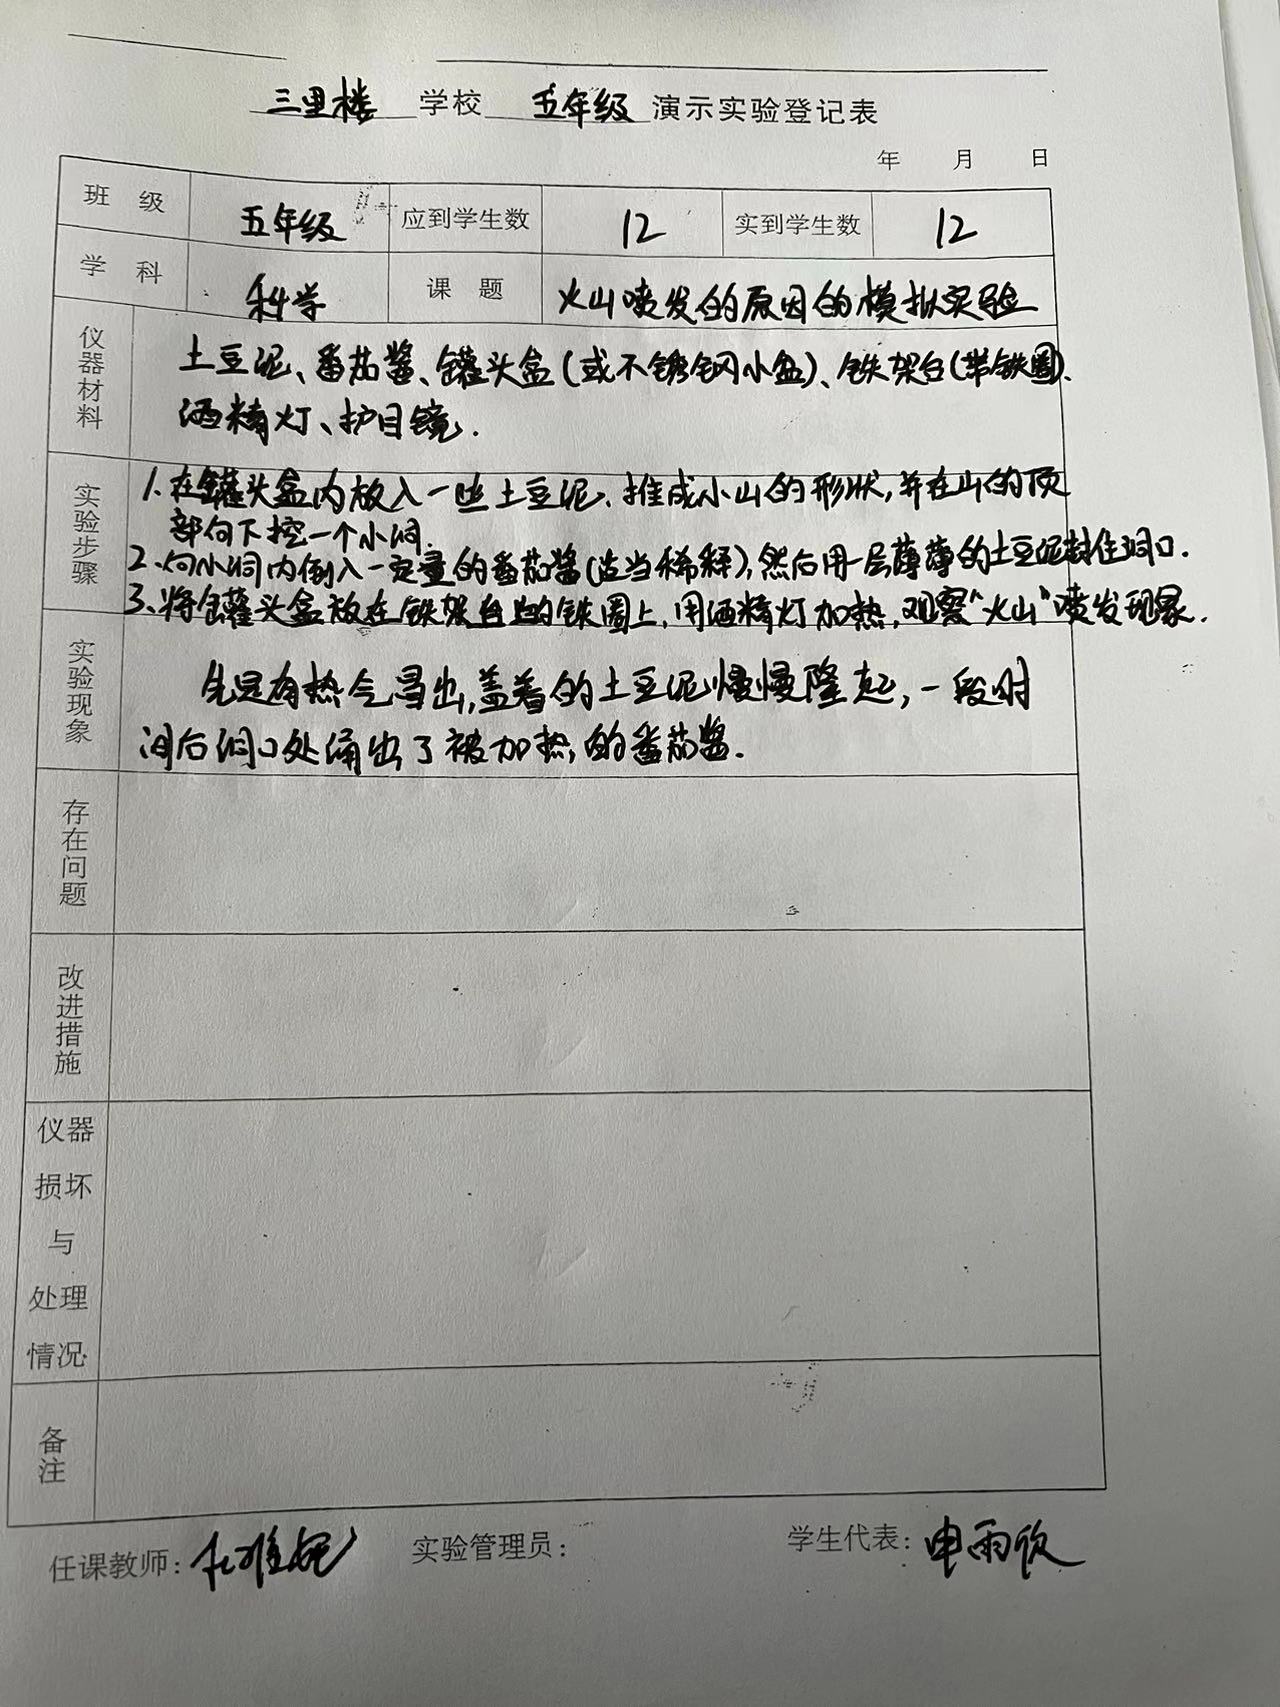 三里楼 学校 五年级 演示实验登记表
年 月 日
班级 五年级 应到学生数 12 实到学生数 12
学科 科学 课题 火山喷发的原因的模拟实验
仪器材料
土豆泥、番茄酱、罐头盒(或不锈钢小盆)、铁架台(带铁圈)、
酒精灯、护目镜.
实验步骤
1.在罐头盒内放入一些土豆泥,堆成小山的形状,并在山的顶
部向下挖一个小洞.
2.向小洞内倒入一定量的番茄酱(适当稀释),然后用一层薄薄的土豆泥封住洞口.
3.将罐头盒放在铁架台上的铁圈上,用酒精灯加热,观察"火山"喷发现象.
实验现象
先是有热气冒出,盖着的土豆泥慢慢隆起,一段时
间后洞口处涌出了被加热的番茄酱.
存在问题
改进措施
仪器
损坏
与
处理
情况
备注
任课教师: 实验管理员: 学生代表:申雨欣